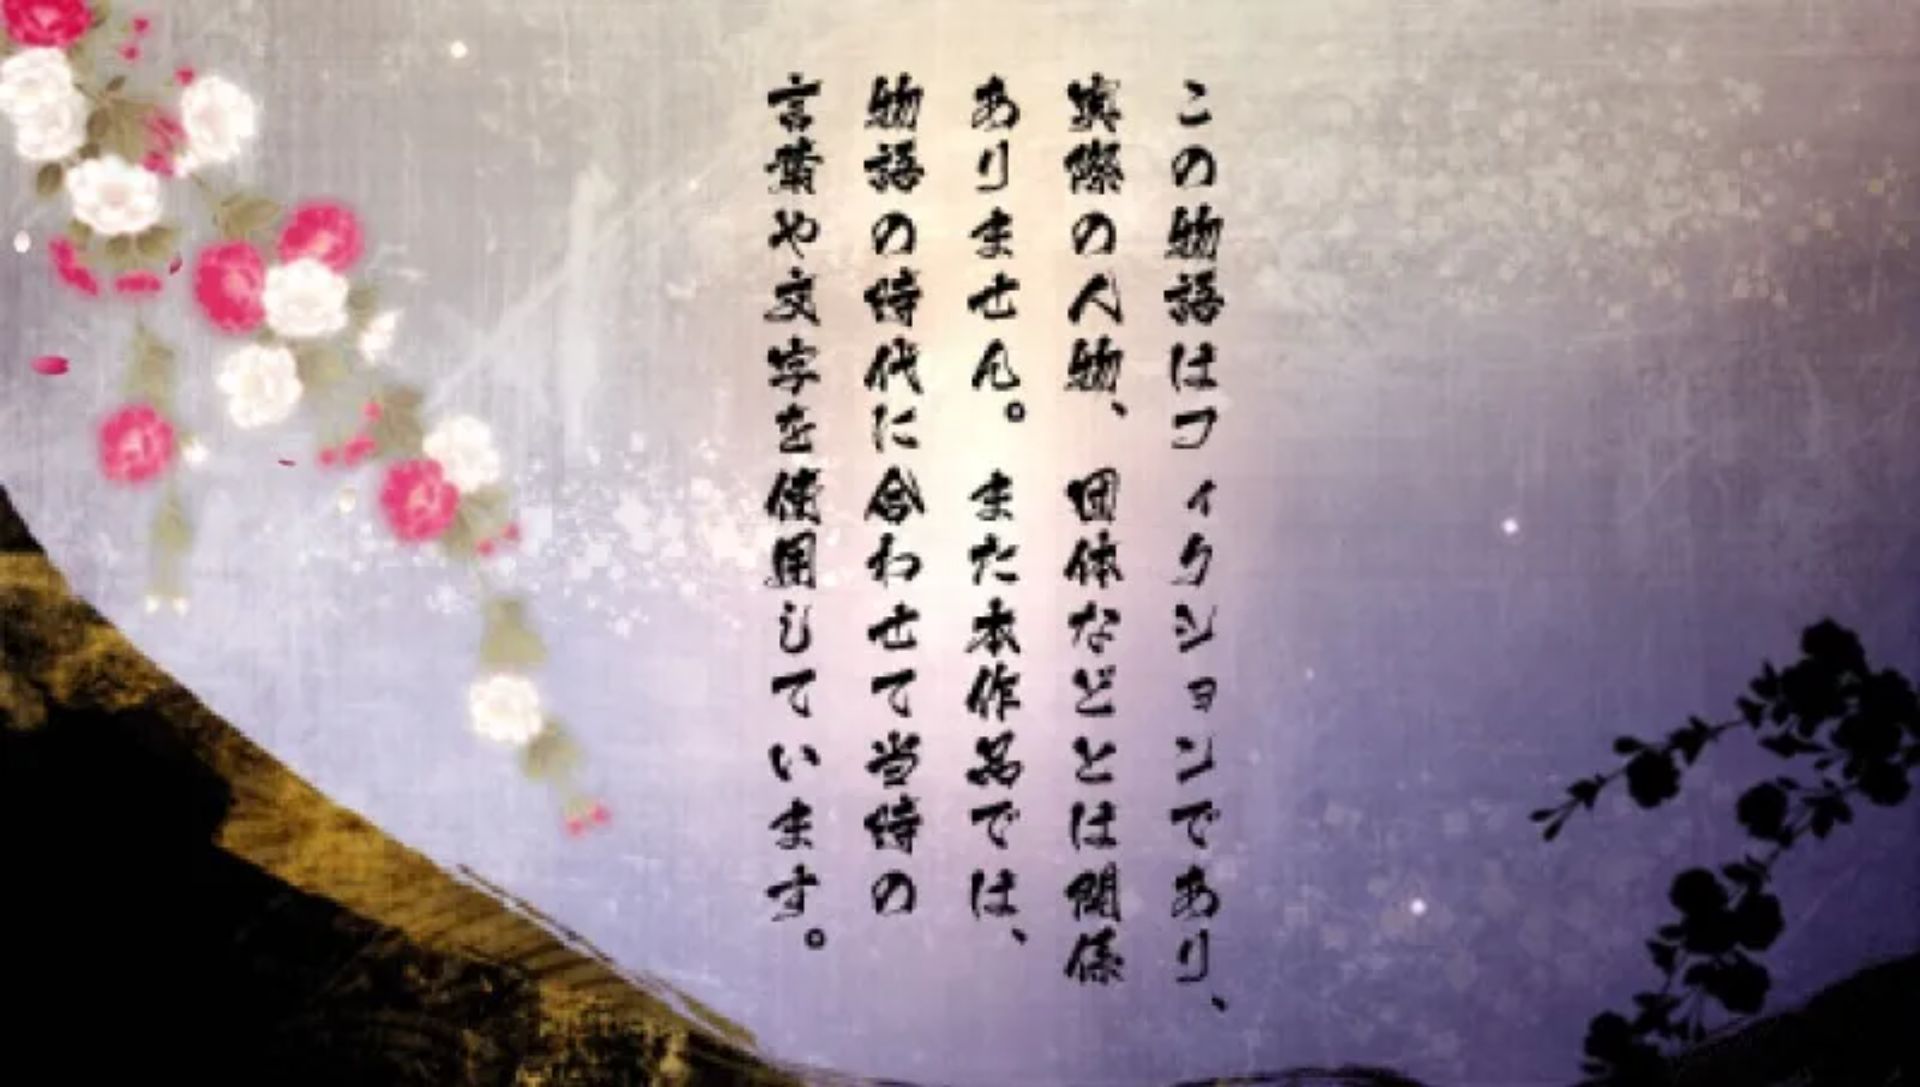 この物語はフィクションであり、
実際の人物、団体などとは関係
ありません。また本作品では、
物語の時代に合わせて当時の
言葉や文字を使用しています。